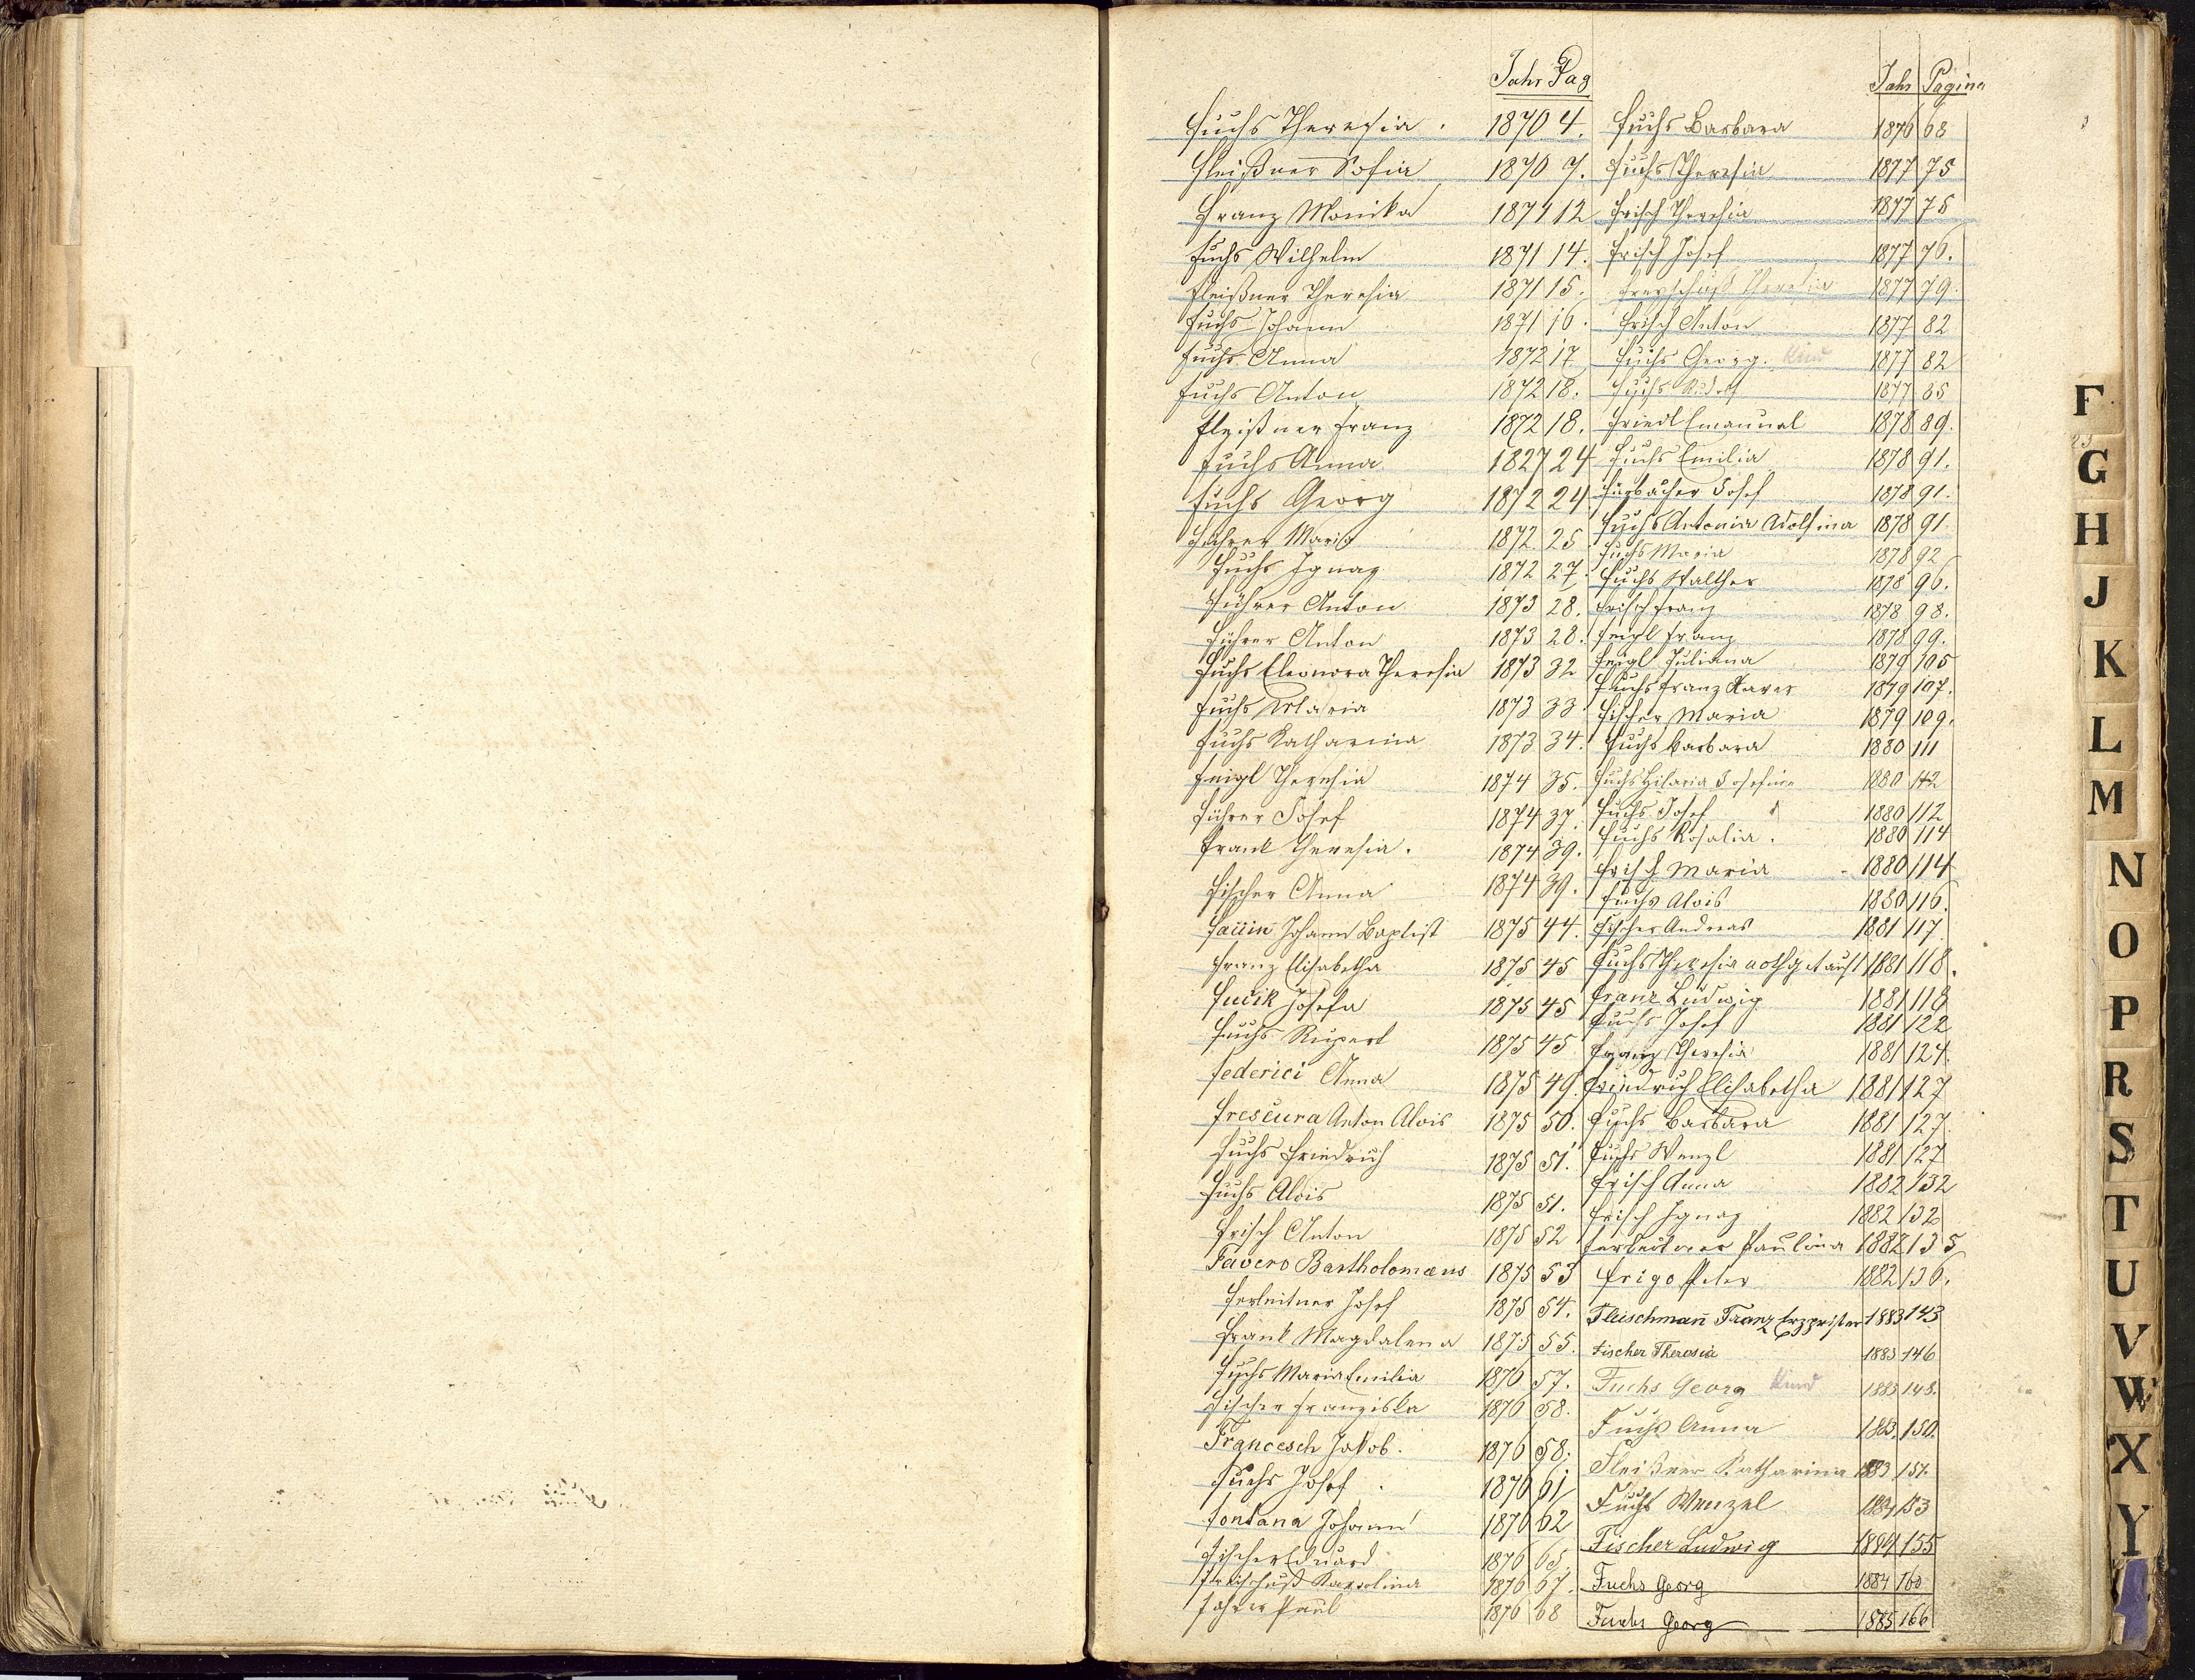 Jahr Pag
Fuchs Theresia . 1870 4.
Fleißner Sofia 1870 7.
Franz Monika 1871 12
Fuchs Wilhelm 1871 14.
Fleißner Theresia 1871 15.
Fuchs Johann 1871 16.
Fuchs Anna 1872 17.
Fuchs Anton 1872 18.
Fleißner Franz 1872 18.
Fuchs Anna 1827 24
Fuchs Georg 1872 24
Führer Maria 1872 25
Fuchs Ignaz 1872 27.
Führer Anton 1873 28.
Führer Anton 1873 28.
Fuchs Eleonora Theresia 1873 32
Fuchs Maria 1873 33
Fuchs Katharina 1873 34.
Feigl Theresia 1874 35.
Führer Josef 1874 37.
Frank Theresia. 1874 39.
Fischer Anna 1874 39.
Johann Baptist 1875 44.
Franz Elisabetha 1875 45
Fučik Josefa 1875 45
Fuchs Rupert 1875 45
Federici Anna 1875 49.
Frescura Anton Alois 1875 50.
Fuchs Friedrich 1875 51.
Fuchs Alois 1875 51.
Frisch Anton 1875 52
Favero Bartholomæus 1875 53
Ferleitner Josef 1875 54.
Frank Magdalena 1875 55.
Fuchs Maria Emilia 1876 57.
Fischer Franziska 1876 58.
Francesch Jakob. 1876 58.
Fuchs Josef . 1876 61
Fontana Johann 1876 62
Fischer Eduard 1876 65.
Karolina 1876 67.
Paul 1876 68
Jahr Pagina
Fuchs Barbara 1876 68
Fuchs Theresia 1877 75
Frisch Theresia 1877 75
Frisch Josef 1877 76.
Freyschuß Theresia 1877 79.
Frisch Anton 1877 82
Fuchs Georg. Kind 1877 82
Fuchs Rudolf 1877 85
Friedl Emanuel 1878 89.
Fuchs Emilia 1878 91.
Fürbacher Josef 1878 91.
Fuchs Antonia Adolfina 1878 91.
Fuchs Maria 1878 92
Fuchs Walther 1878 96.
Frisch Franz 1878 98.
Feigl Franz 1878 99.
Feigl Juliana 1879 105
Fuchs Franz Xaver 1879 107.
Fischer Maria 1879 109.
Fuchs Barbara 1880 111
Fuchs Hilaria Josefine 1880 112
Fuchs Josef 1880 112
Fuchs Rosalia . 1880 114
Frisch Maria 1880 114
Fuchs Alois 1880 116.
Fischer Andreas 1881 117
Fuchs Theresia nothgetauft 1881 118.
Franz Ludwig 1881 118
Fuchs Josef 1881 122
Franz Theresia 1881 124.
Friedrich Elisabetha 1881 127
Fuchs Barbara 1881 127.
Fuchs Wenzl 1881 127
Frisch Anna 1882 132
Frisch Ignaz 1882 132
Ferleitner Paulina 1882 135
Frigo Peter 1882 136.
Fleischmañ Franz Erzpriester 1883 143
Fischer Theresia 1883 146
Fuchs Georg Kind 1883 148.
Fuchs Anna 1883. 150.
Fleißner Katharina 1883 151.
Fuchs Wenzel 1884 153
Fischer Ludwig 1884 155
Fuchs Georg 1884 160
Fuchs Georg 1885 166
F
G
H
J
K
L
M
N
O
P
R
S
T
U
V
W
X
Y